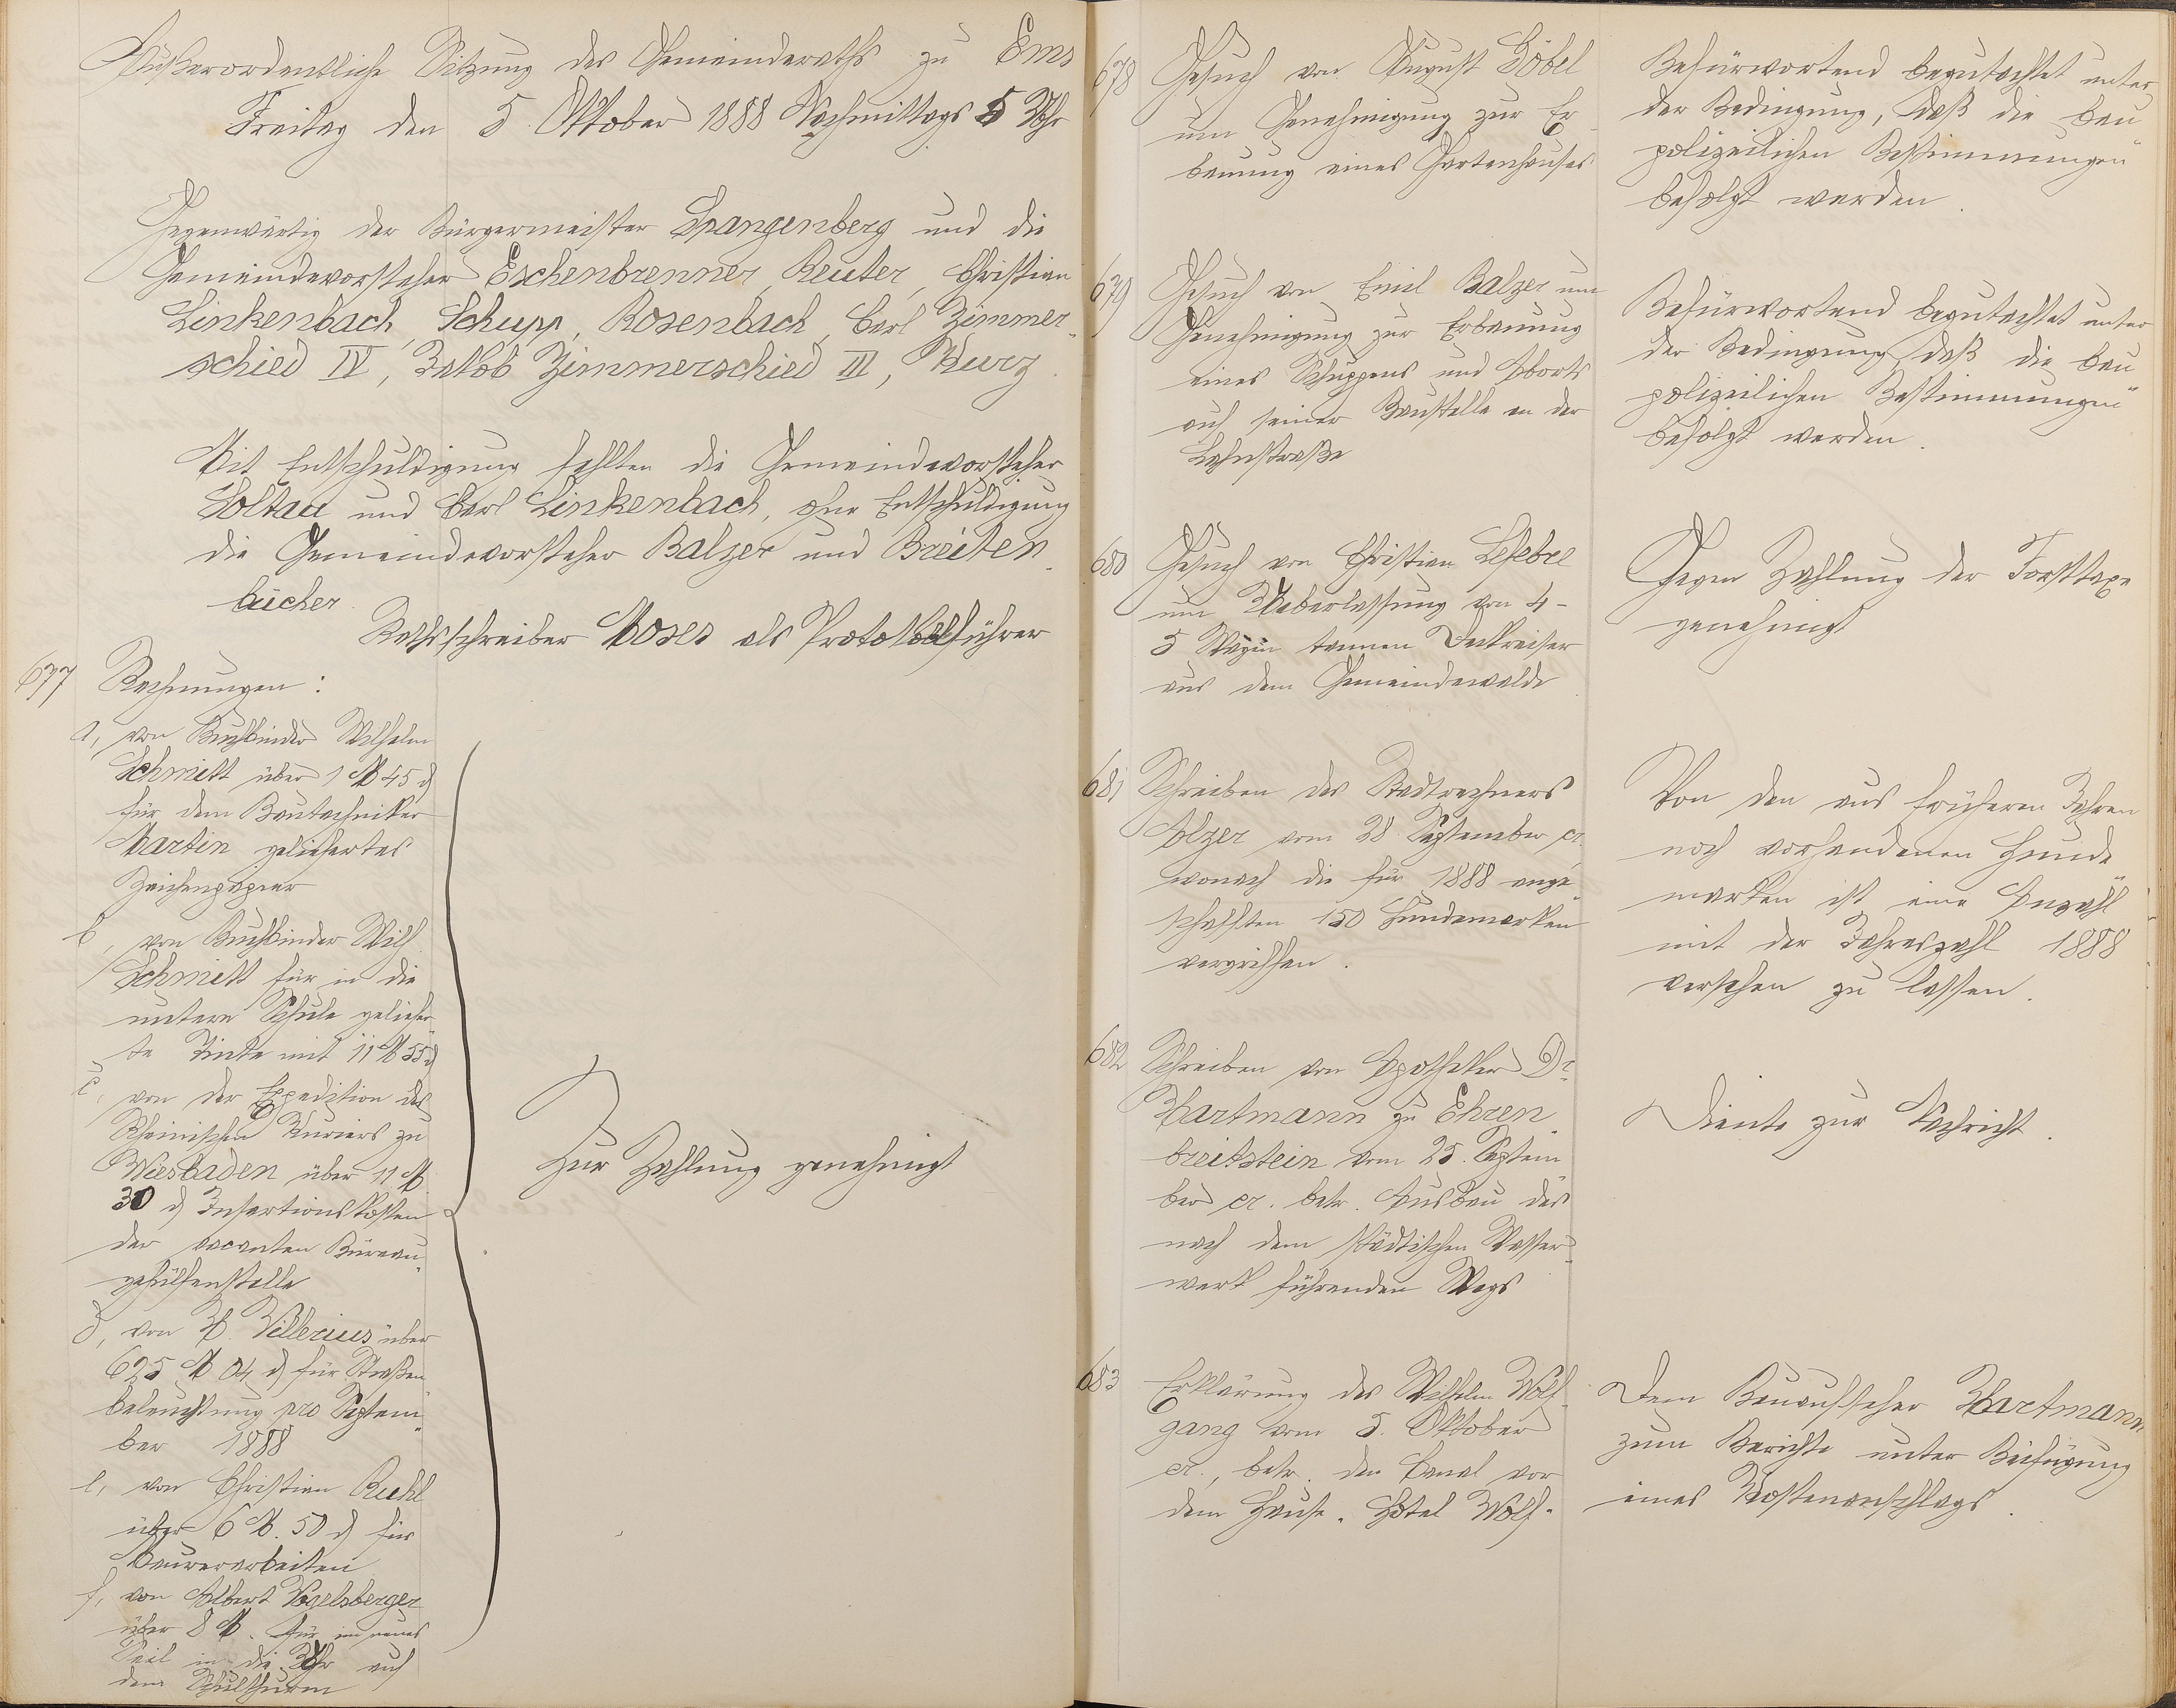 Außerordentliche Sitzung des Gemeinderaths zu Ems
Freitag den 5. Oktober 1888 Nachmittags 5 Uhr
Gegenwärtig der Bürgermeister Spangenberg und die
Gemeindevorsteher Eschenbrenner, Reuter, Christian
Linkenbach, Schupp, Rosenbach, Carl Zimmer-
schied IV, Jakob Zimmerschied III, Kurz.
Mit Entschuldigung fehlten die Gemeindevorsteher
Soltau und Carl Linkenbach, ohne Entschuldigung
die Gemeindevorsteher Balzer und Breiten-
bücher.
Rathsschreiber Moses als Protokollführer
677 Rechnungen:
a, von Buchbinder Wilhelm
Schmitt über 1 M 45 d
für dem Bautechniker
Martin geliefertes
Zeichenpapier
b, von Buchbinder Wilh.
Schmitt für in die
untere Schule geliefer-
te Tinte mit 11 M 55 d
c, von der Expedition des
Rheinischen Kuriers zu
Wiesbaden über 11 M.
30 d Insertionskosten
der vacanten Büreau-
gehülfenstelle
d, von H. Villerius über
625 M 04 d für Straßen-
beleuchtung pro Septem-
ber 1888
e, von Christian Ruhl
über 6 M. 50 d für
Maurerarbeiten
f, von Albert Vogelsberger
über 8 M. für ein neues
Seil in die Uhr auf
dem Schulthurm
Zur Zahlung genehmigt
678 Gesuch von August Göbel
um Genehmigung zur Er-
bauung eines Gartenhauses
Befürwortend begutachtet unter
der Bedingung, daß die bau-
polizeilichen Bestimmungen
befolgt werden.
679 Gesuch von Emil Balzer um
Genehmigung zur Erbauung
eines Schuppens und Aborts
auf seiner Baustelle an der
Lahnstraße
Befürwortend begutachtet unter
der Bedingung, daß die bau-
polizeilichen Bestimmungen
befolgt werden.
680 Gesuch von Christian Lefebre
um Ueberlassung von 4-
5 Wagen tannen Deckreiser
aus dem Gemeindewalde
Gegen Zahlung der Forsttaxe
genehmigt
681 Schreiben des Stadtrechners
Alzer vom 28. September cr.
wonach die für 1888 ange-
schafften 150 Hundemarken
vergriffen.
Von den aus früheren Jahren
noch vorhandenen Hunde-
marken ist eine Anzahl
mit der Jahreszahl 1888
versehen zu lassen.
682 Schreiben von Apotheker Dr.
Hartmann zu Ehren-
breitstein vom 25. Septem-
ber cr. betr. Ausbau des
nach dem städtischen Wasser-
werk führenden Wegs
Diente zur Nachricht.
683 Erklärung des Wilhelm Wolf-
gang vom 5. Oktober
cr., betr. den Canal vor
dem Hause "Hotel Wolf"
Dem Bauaufseher Hartmann
zum Berichte unter Beifügung
eines Kostenanschlags.